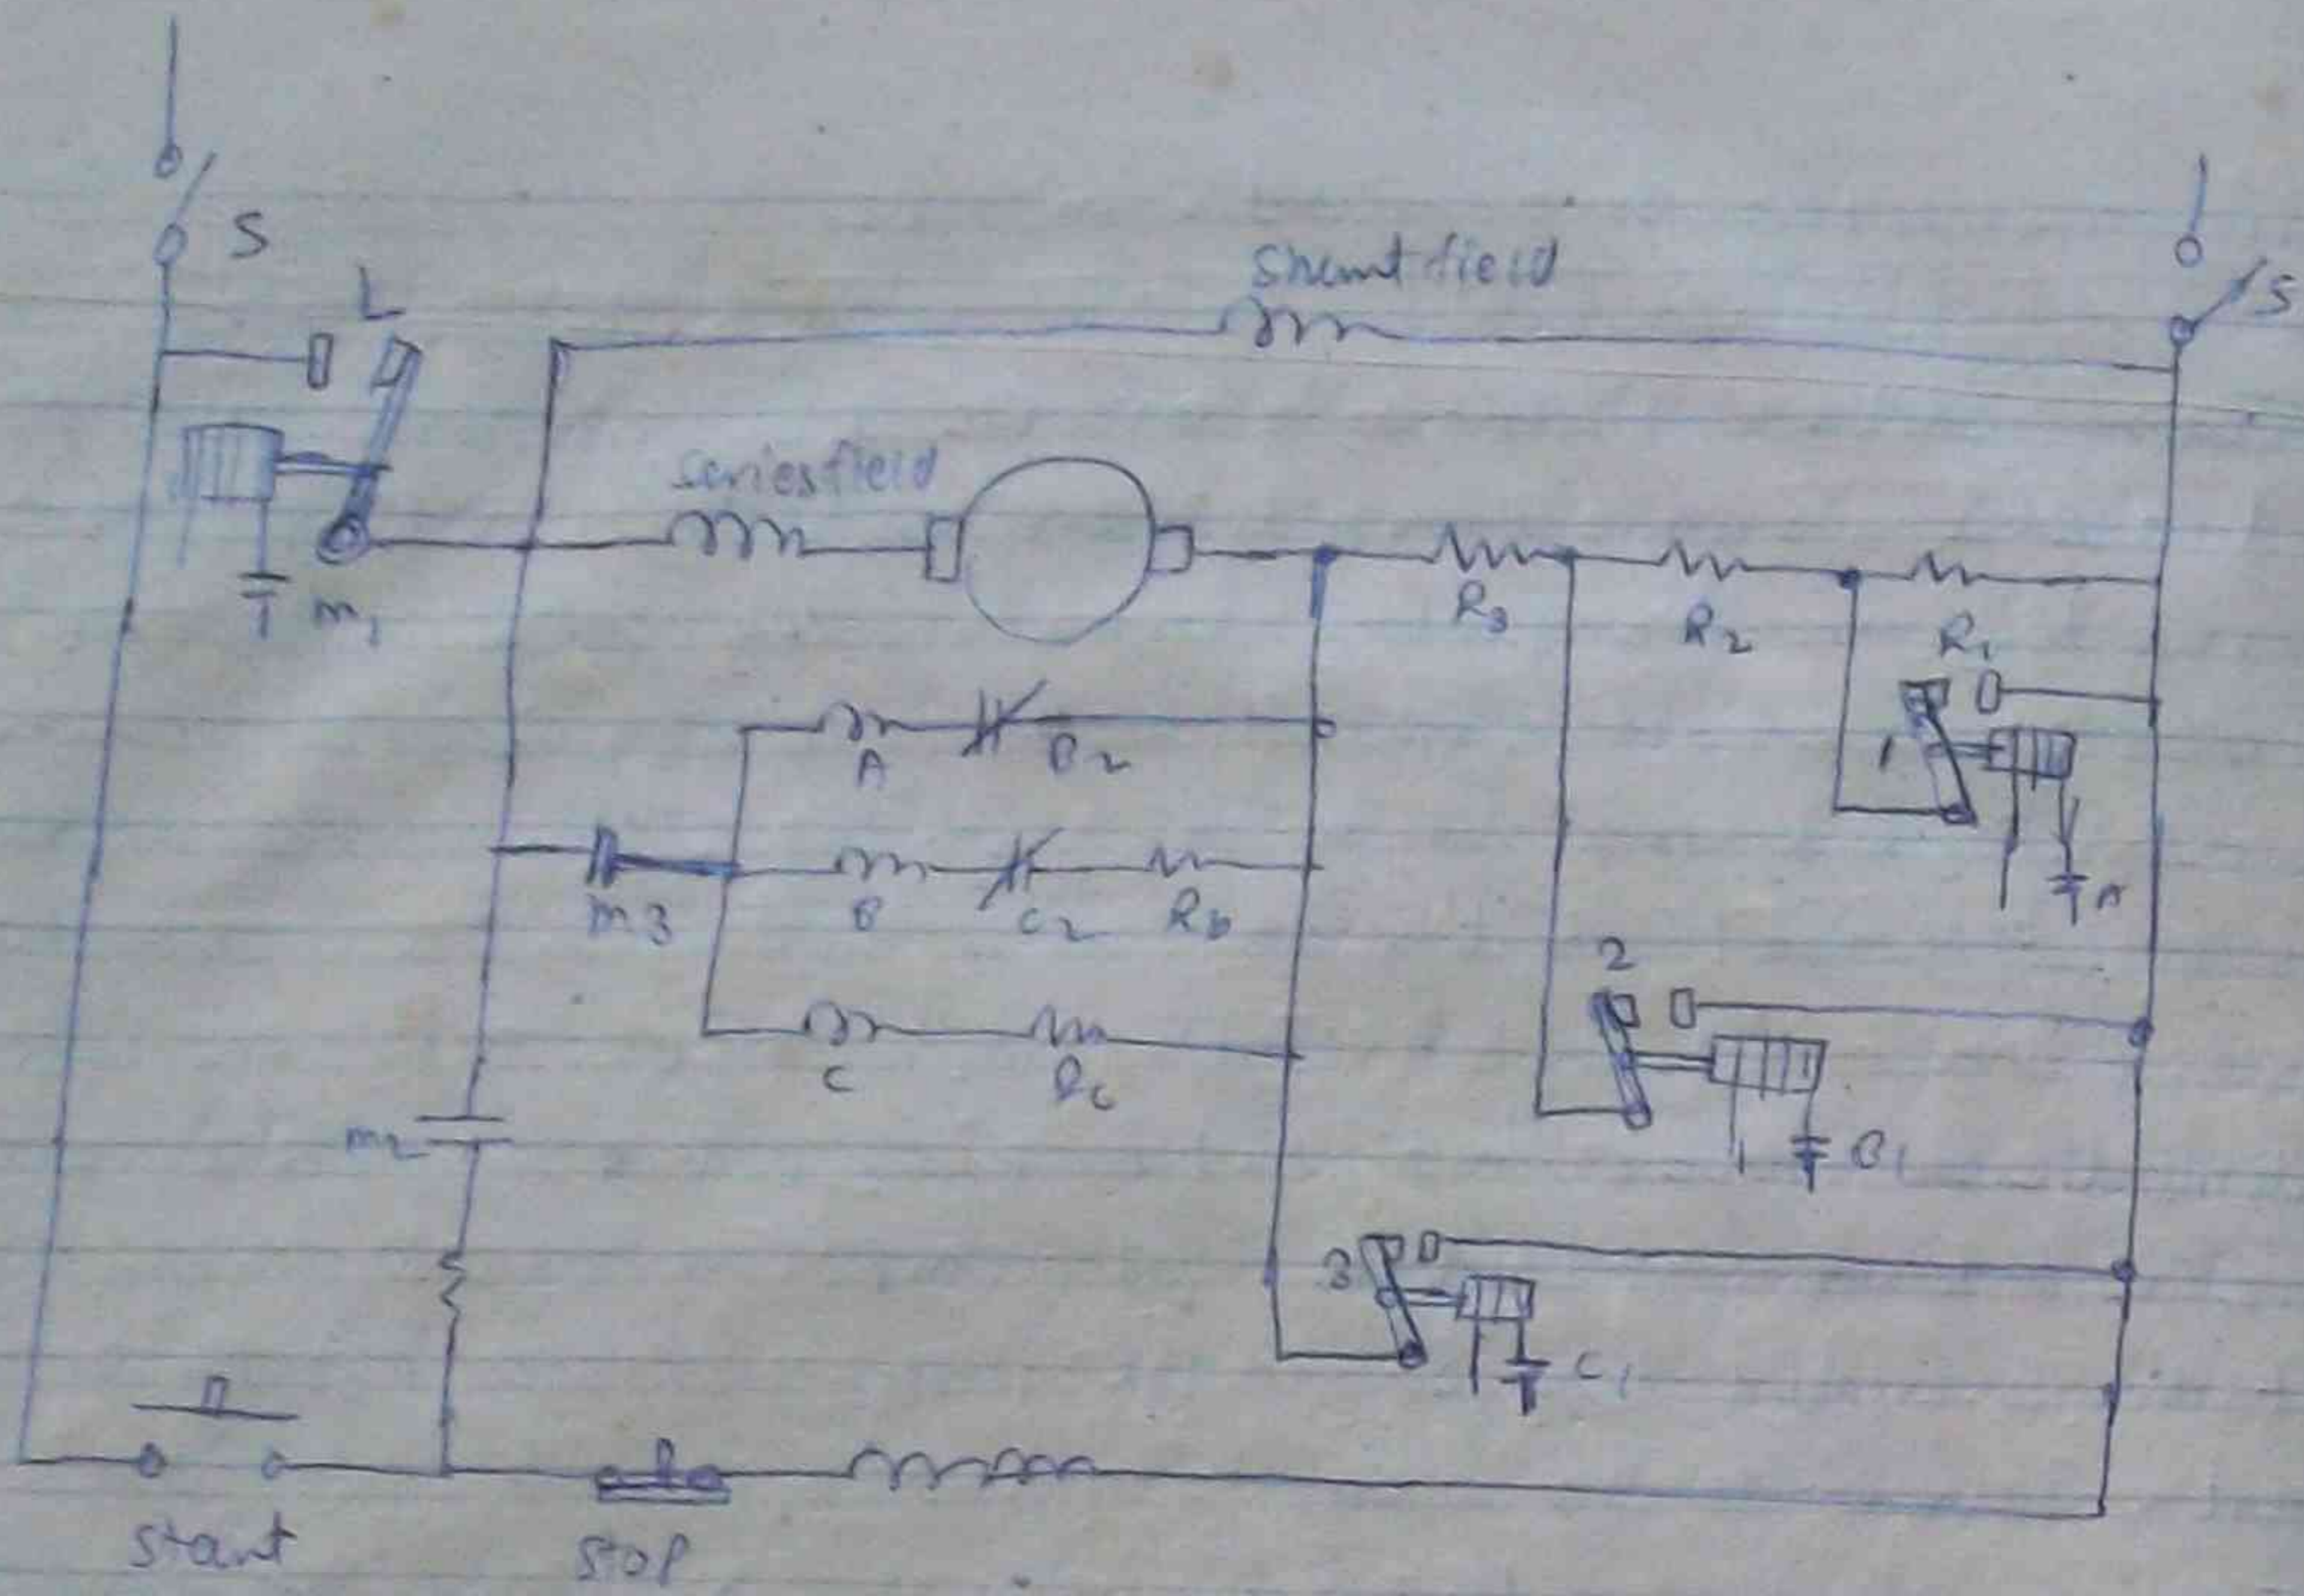 S
L
Shunt field
S
series field
m1
R3
R2
R1
A
B2
1
m3
B
C2
Rb
A
2
C
Rc
m2
B1
3
C1
start
stop